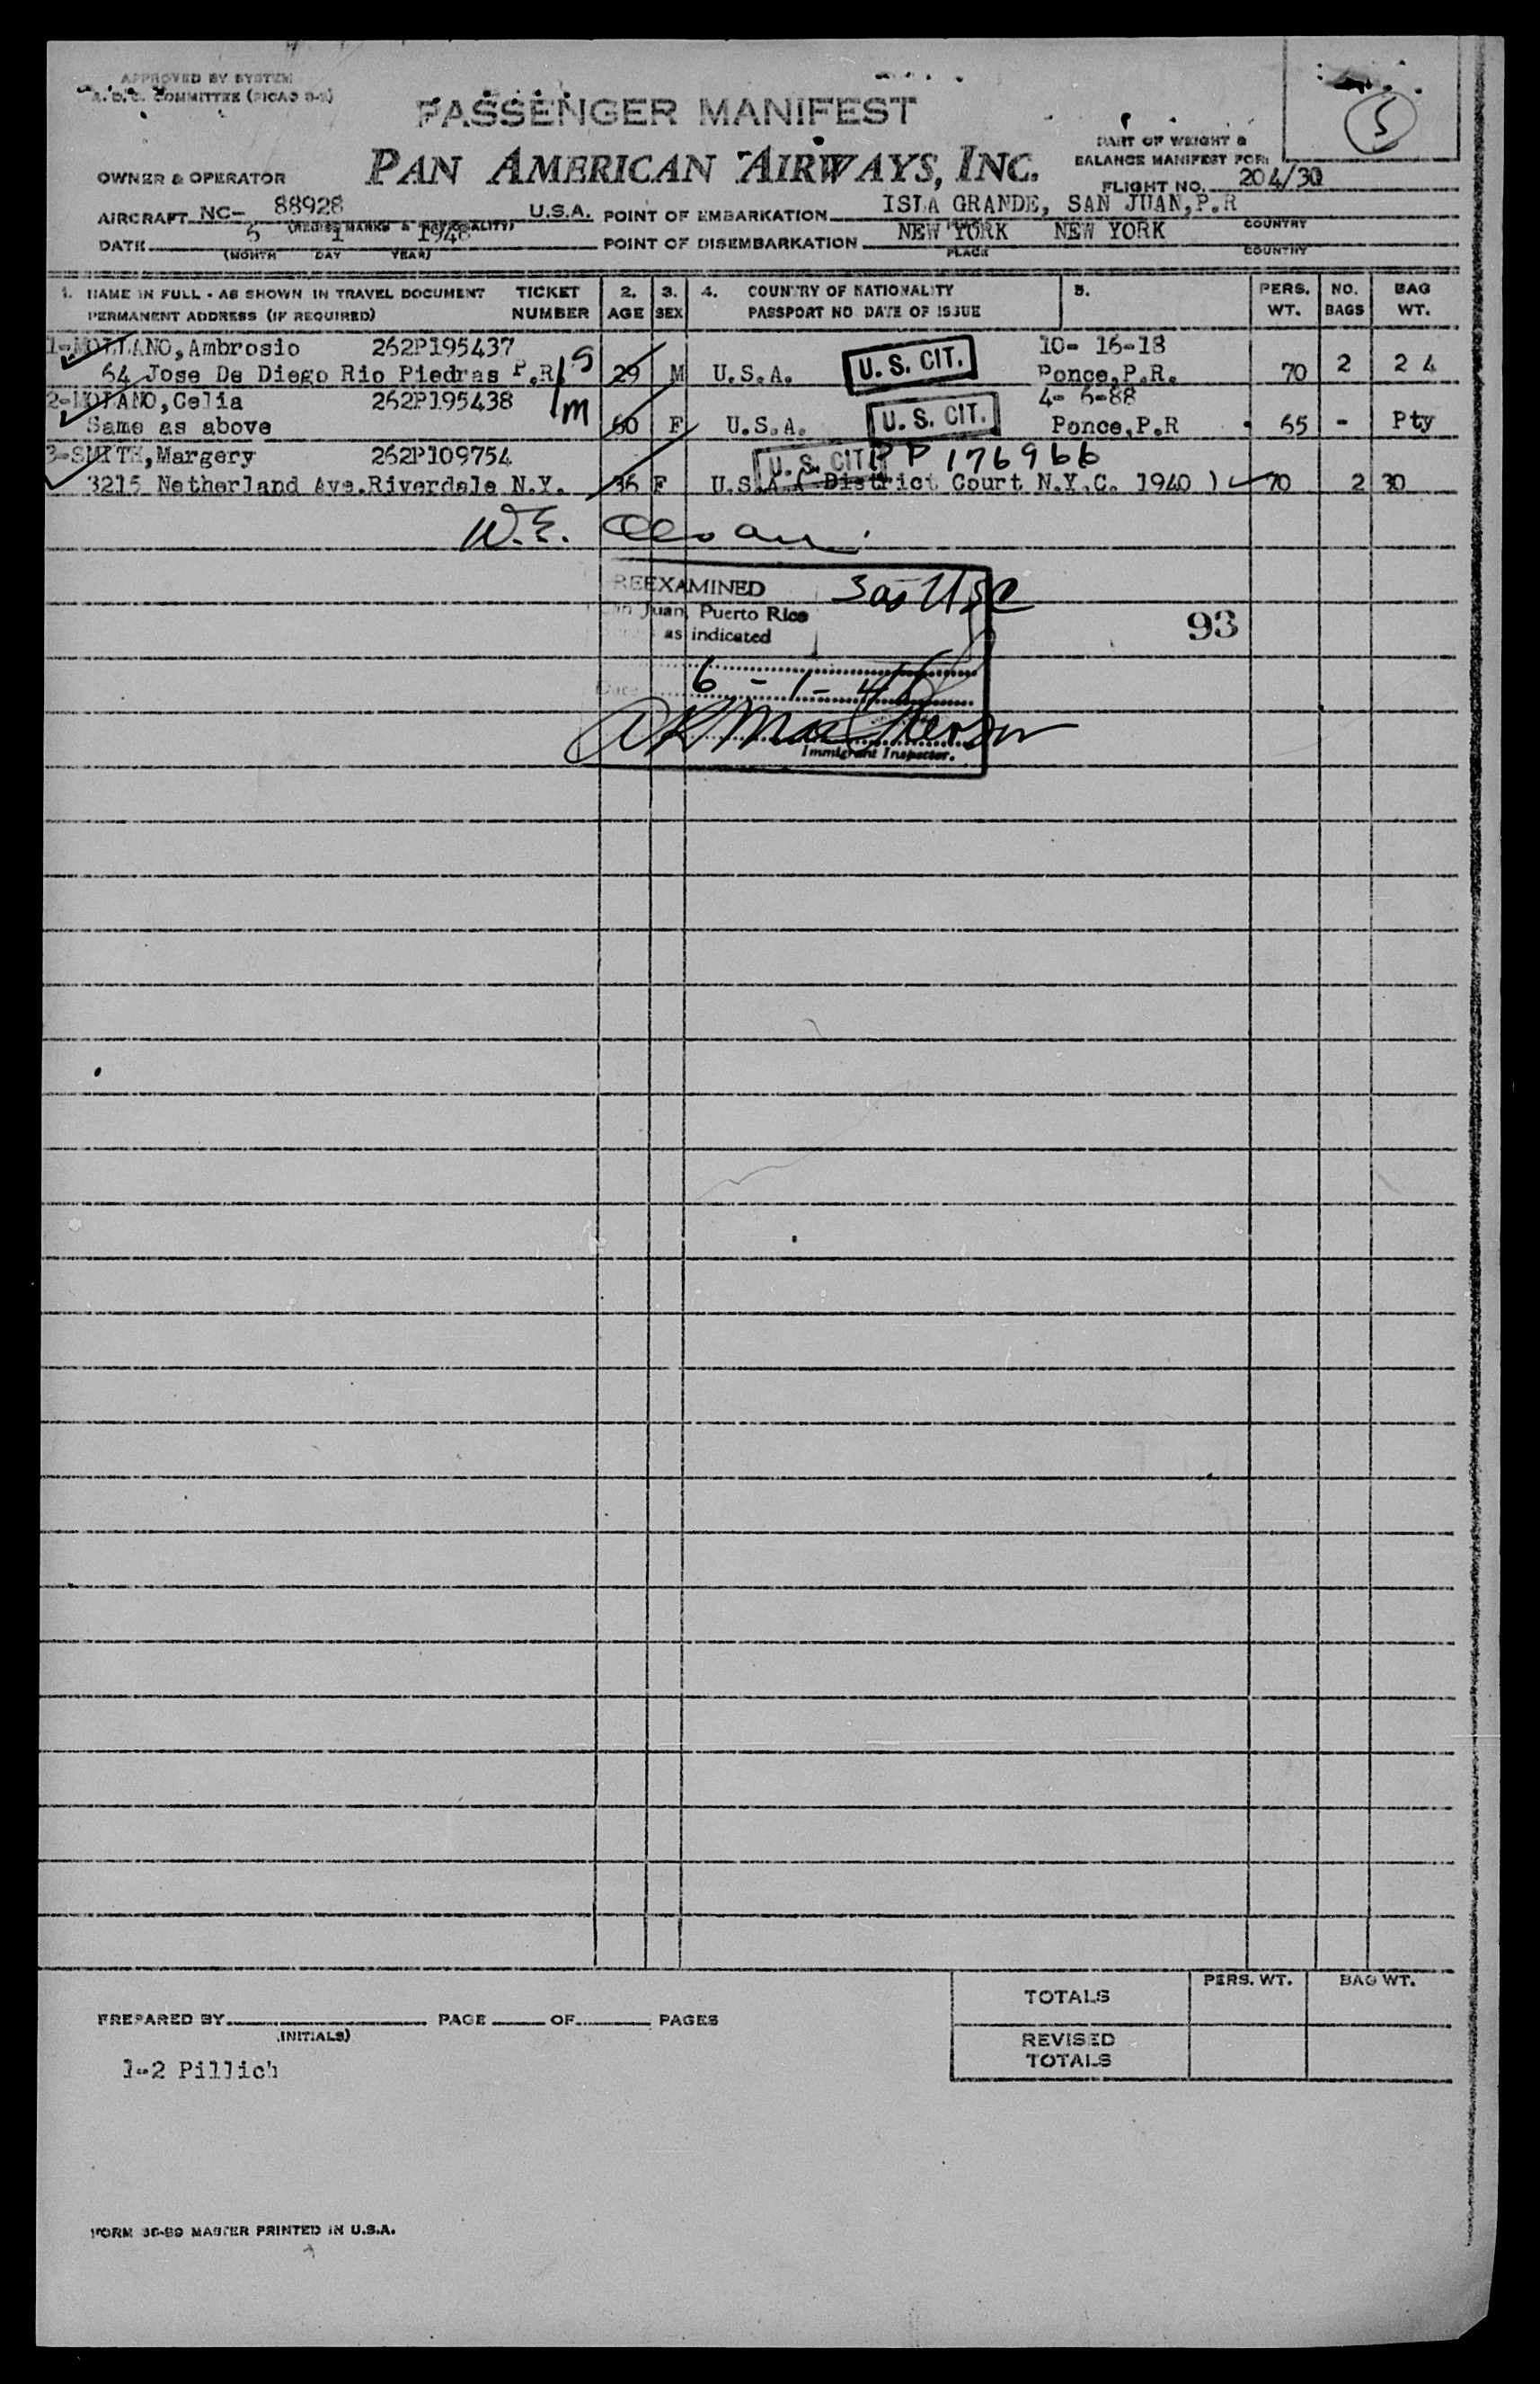 APPROVED BY SYSTEM
A.O.C. COMMITTEE (PICAO
PASSENGER MANIFEST
5
PART OF WEIGHT &
BALANCE MANIFEST FOR:
OWNER & OPERATOR PAN AMERICAN AIRWAYS, INC. FLIGHT NO. 204/30
AIRCRAFT NC- 88928 U.S.A. POINT OF EMBARKATION ISLA GRANDE, SAN JUAN,P.R
(REGIS. MARKS & NATIONALITY) COUNTRY
DATE 1 1948 POINT OF DISEMBARKATION NEW YORK NEW YORK
(MONTH DAY YEAR) PLACE COUNTRY
1. NAME IN FULL - AS SHOWN IN TRAVEL DOCUMENT TICKET 2. 3. 4. COUNTRY OF NATIONALITY 5. PERS. NO. BAG
PERMANENT ADDRESS (IF REQUIRED) NUMBER AGE SEX PASSPORT NO DATE OF ISSUE WT. BAGS WT.
1- Ambrosio 262P195437 10- 16-18
64 Jose De Diego Rio Piedras P.R. S 29 M U.S.A. U. S. CIT. Ponce,P.R. 70 2 24
2- Celia 262P195438 4- 6-88
Same as above M 60 F U.S.A. U. S. CIT. Ponce,P.R 65 - Pty
3-SMITH,Margery 262P109754 U. S. CIT. PP 176966
3215 Netherland Ave.Riverdale N.Y. 36 F U.S.A ( District Court N.Y.C. 1940 ) 70 2 30
W.E.
REEXAMINED 3 USC
San Juan, Puerto Rico
as indicated
93
Date 6-1-48
Immigrant Inspector.
TOTALS PERS. WT. BAG WT.
PREPARED BY PAGE OF PAGES
(INITIALS)
REVISED
TOTALS
1-2 Pillich
FORM MASTER PRINTED IN U.S.A.